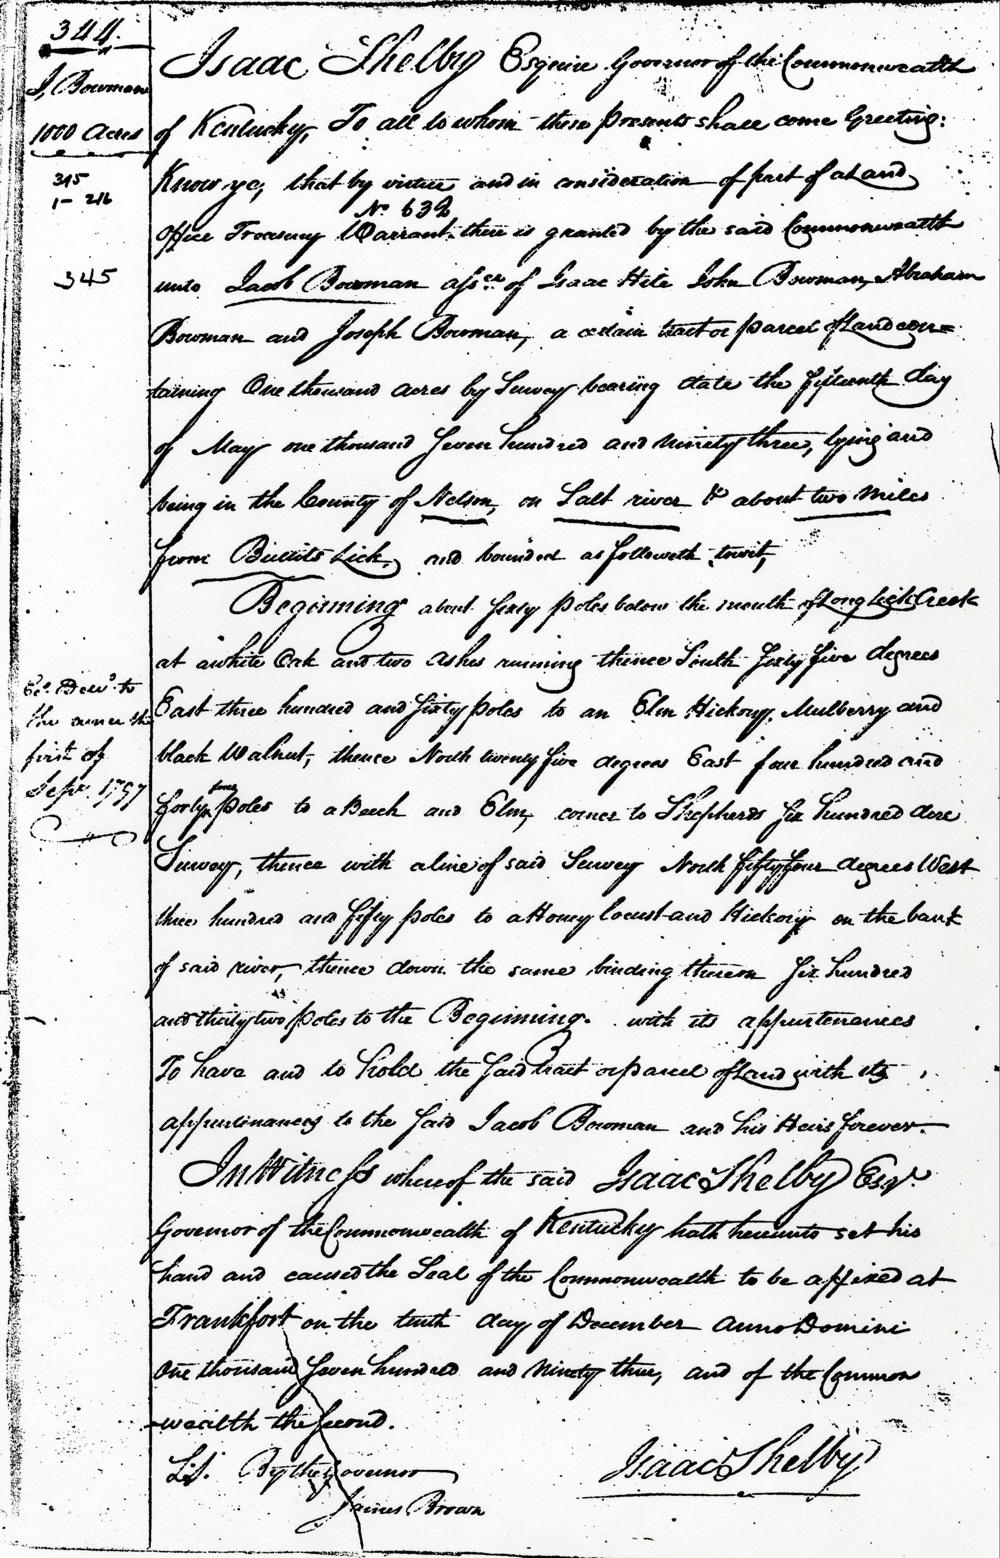 344.
J, Bowman
1000 Acres
315
1- 216
345
Isaac Shelby Esquire Governor of the Commonwealth
of Kentucky, To all to whom these presents shall come Greeting:
Know ye, that by virtue and in consideration of part of a Land
No 632
Office Treasury Warrant. there is granted by the said Commonwealth
unto Jacob Bowman assee of Isaac Hite John Bowman, Abraham
Bowman and Joseph Bowman, a certain tract or parcel of Land con=
taining One thousand acres by Survey bearing date the fifteenth day
of May one thousand Seven hundred and ninety three, lying and
being in the County of Nelson, on Salt river & about two miles
from Bullits Lick, and bounded as followeth, towit,
Beginning about Sixty poles below the mouth of Long Lick Creek
at a white Oak and two ashes running thence South Sixty five degrees
East three hundred and Sixty poles to an Elm Hickory, Mulberry and
black Walnut, thence North twenty five degrees East four hundred and
forty four poles to a Beech and Elm, corner to Shepherds Six hundred Acre
Survey, thence with a line of said Survey North fifty four degrees West
three hundred and fifty poles to a Honey locust and Hickory on the bank
of said river, thence down the same binding thereon Six hundred
and thirty two poles to the Beginning. with its appurtenances
To have and to hold the Said tract or parcel of Land with its
appurtenances to the Said Jacob Bowman and his Heirs forever.
In Witness whereof the said Isaac Shelby Esqr.
Governor of the Commonwealth of Kentucky hath hereunto set his
hand and caused the Seal of the Commonwealth to be affixed at
Frankfort on the tenth day of December Anno Domini
One thousand Seven hundred and ninety three, and of the Common
-wealth the Second.
L.S. By the Governor
Isaac Shelby
James Brown
Ex. Delvd. to
the owner the
first of
Sepr. 1797